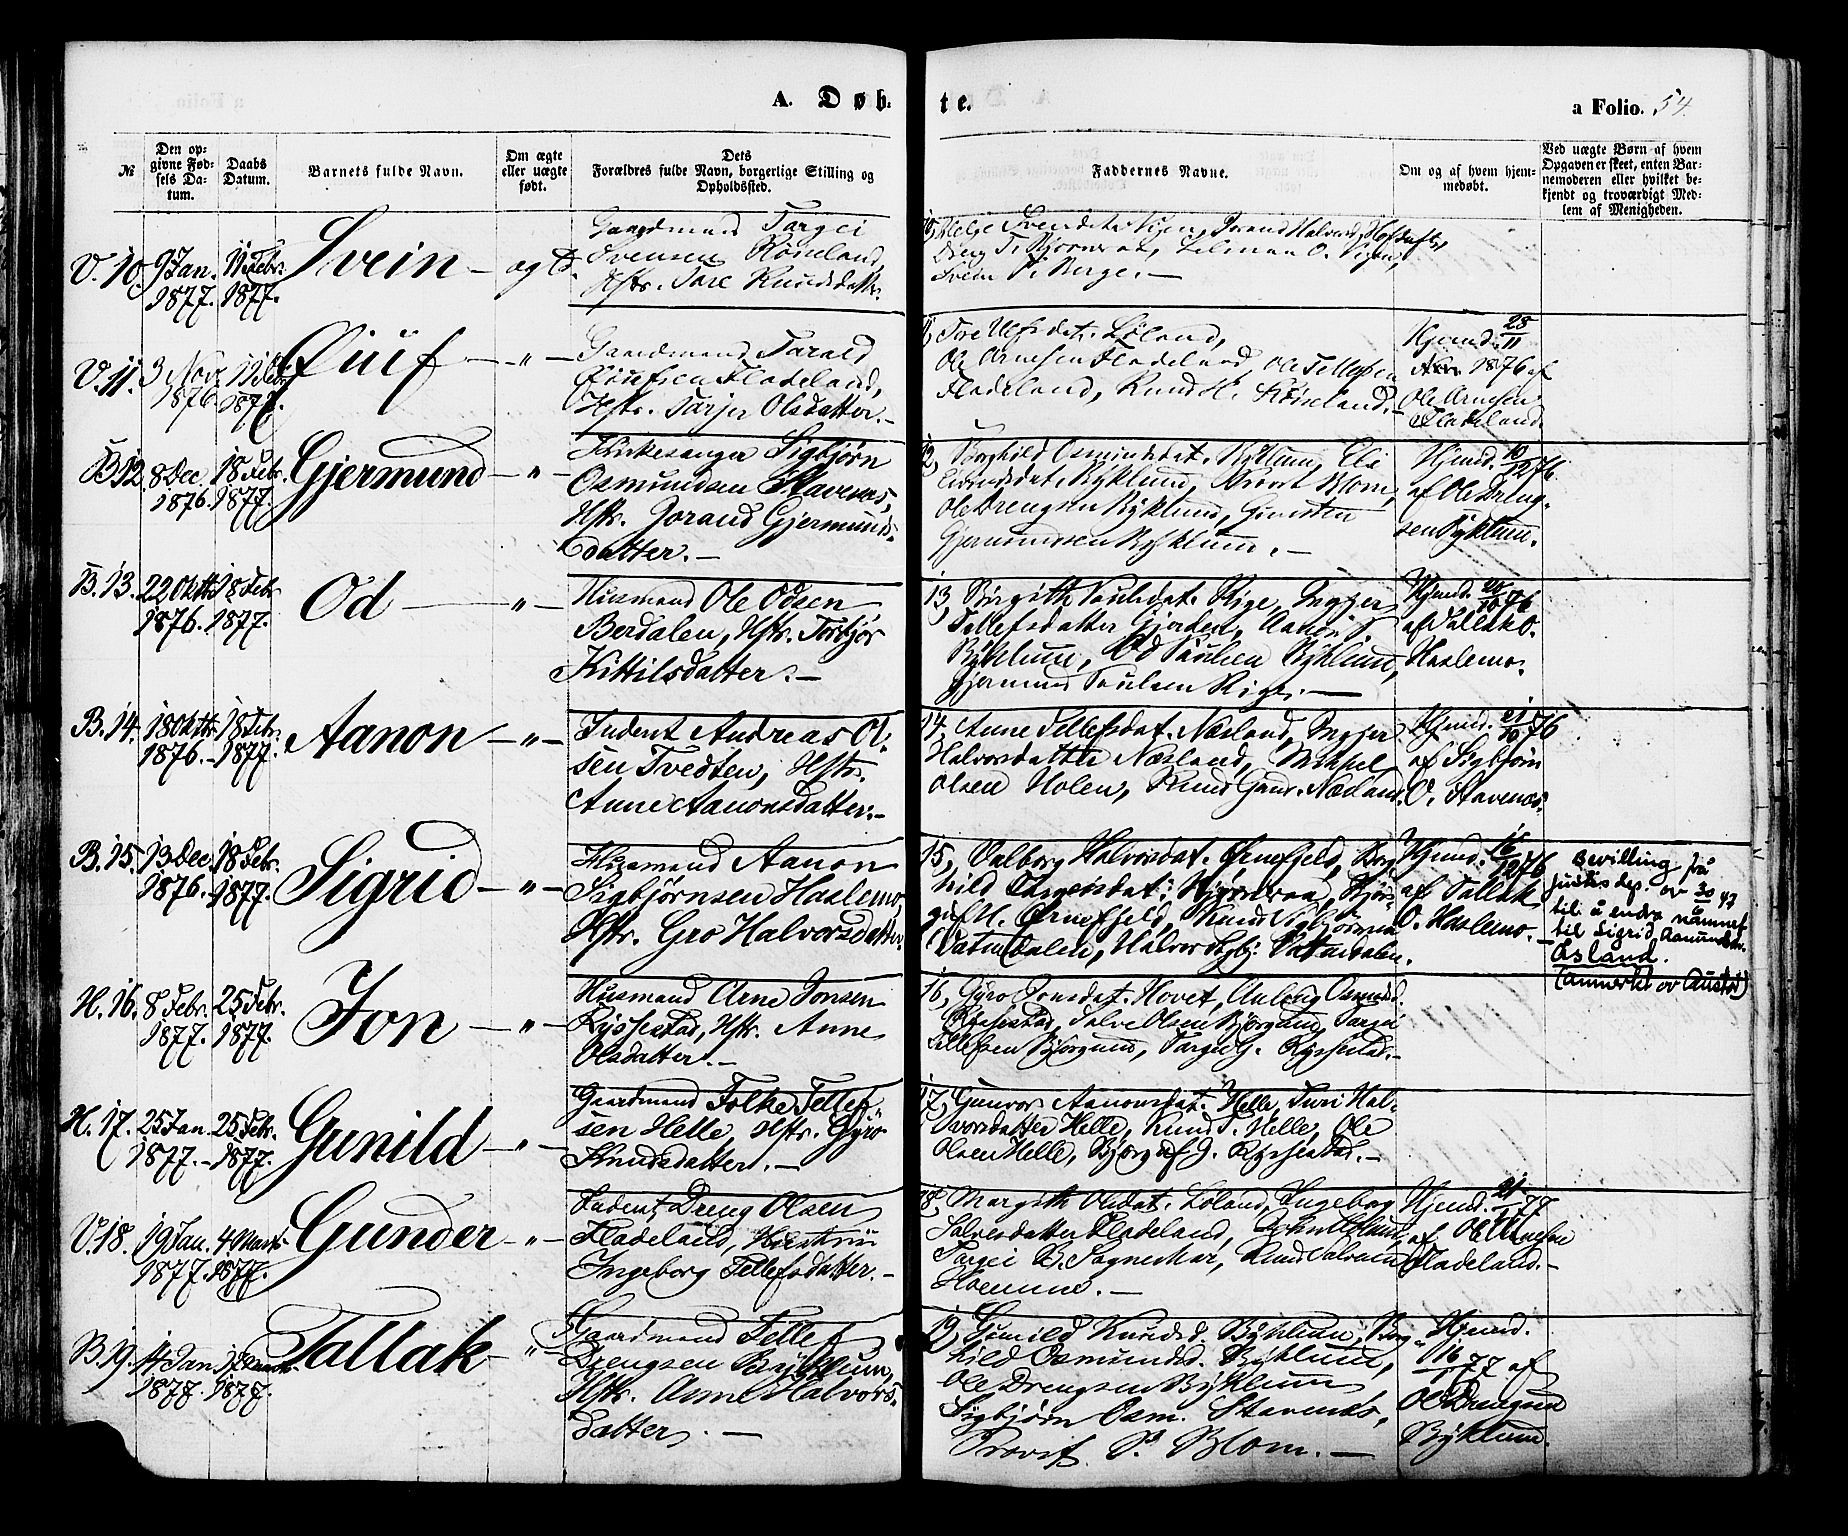 A. Døb-
te.
a Folio. 54.
№
Den op-
givne Fød-
sels Da-
tum.
Daabs
Datum.
Barnets fulde Navn.
Om ægte
eller uægte
født.
Dets
Forældres fulde Navn, borgerlige Stilling og
Opholdssted.
Faddernes Navne.
Om og af hvem hjem-
medøbt.
Ved uægte Børn af hvem
Opgaven er skeet, enten Bar-
nemoderen eller hvilket be-
kjendt og troværdigt Med-
lem af Menigheden.
V. 10.
9 Jan.
1877.
11 Febr.
1877.
Svein
ægt.
Gaardmand Targei
Svensen Røiseland,
Hstr. Tore Knudsdatter.
Svein T. Berge.
V. 11.
3 Nov.
1876.
11 Febr.
1877.
Øiuf
"
Gaardmand Tarald
Øiufsen Fladeland,
Hstr. Tarjer Olsdatter.
11, Tve Ulfsdat. Løland,
Ole Arnesen Fladeland, Ole Tellefsen
Fladeland, Knud H. Røiseland.
Hjemd. 28/11
1876 af
Ole Arnesen
Fladeland.
B. 12.
8 Dec.
1876.
18 Febr.
1877.
Gjermund
"
Kirkesanger Sigbjørn
Osmundsen Stavenes,
Hstr. Jorand Gjermunds-
datter.
12, Borghild Osmundsdat. Nyklum,
Byklund, Blom,
Ole Drengsen Byklund, Gunsten
Gjermundsen Byklum.
Hjemd. 10/12 76
af Ole Dreng-
sen Byklum.
B. 13.
22 Oktbr.
1876.
18 Febr.
1877.
Od
"
Husmand Ole Odsen
Berdalen, Hstr. Torbjør
Kittilsdatter.
13, Birgith Paulsdat. Rige, Ingjer
Tellefsdatter Gjerden, Aanon T.
Byklum, Od Paulsen Byklum,
Gjermund Paulsen Rige.
Hjemd.
af Tallak O.
Haslemo.
B. 14.
18 Oktbr.
1876.
18 Febr.
1877.
Aanon
"
Inderst Andreas Ol-
sen Tvedten, Hstr.
Anne Aanonsdatter.
14, Anne Tellefsdat. Næsland, Ingjer
Halvorsdatter Næsland, Mikkel
Olsen Holen, Knud Gund. Næsland.
Hjemd. 21/10 76
af Sigbjørn
O. Stavenes.
B. 15.
13 Dec.
1876.
18 Febr.
1877.
Sigrid
"
Husmand Aanon
Sigbjørnsen Haslemo,
Hstr. Gro Halvorsdatter.
15, Valborg Halvorsdat. Ørnefjeld, Borg-
hild Targeisdat. Bjørnaraa, Bjør-
gulf H. Ørnefjeld, Knud Sigbjørnsen
Vatnedalen, Halvor Sigbj. Vatnedalen.
Hjemd. 16/12 76
af Tallak
O. Haslemo.
Bevilling frå
justisdep. av 30/6 47
til å endre namnet
til Sigrid Aamundsen
Åsland.
(anmerket av Austad)
H. 16.
8 Febr.
1877.
25 Febr.
1877.
Jon
"
Husmand Arne Jonsen
Rysstad, Hstr. Anne
Olsdatter.
16, Gyro Jonsdat. Hovet, Anlaug Osmundsd.
Rysstad, Salve Olsen Bjørgum, Targei
Tellefsen Bjørgum, Targei G. Rysstad.
H. 17.
25 Jan.
1877.
25 Febr.
1877.
Gunild
"
Gaardmand Folke Tellef-
sen Helle, Hstr. Gyro
Knudsdatter.
17, Gunvor Aanonsdat. Helle, Turi Hal-
vorsdatter Helle, Knud T. Helle, Ole
Olsen Helle, Bjørgulf G. Rysstad.
V. 18.
19 Jan.
1877.
4 Marts
1877.
Gunder
"
Inderst Dreng Olsen
Fladeland, Hustru
Ingeborg Tellefsdatter.
18, Margith Olsdat. Løland, Ingeborg
Salvesdatter Fladeland,
Targei B. Sagneskar, Knud Salvesen
Homme.
Hjemd. 21/1 77
af Ole Arnesen
Fladeland.
B. 19.
14 Jan.
1877.
1877.
Tallak
"
Gaardmand Tellef
Drengsen Byklum,
Hstr. Anne Halvors-
datter.
19, Gunild Knudsd. Byklum, Borg-
hild Osmundsd. Byklum,
Ole Drengsen Byklum
Sigbjørn Osm. Stavenes,
Provst P. Blom.
Hjemd.
16/1 77 af
Ole Drengsen
Byklum.